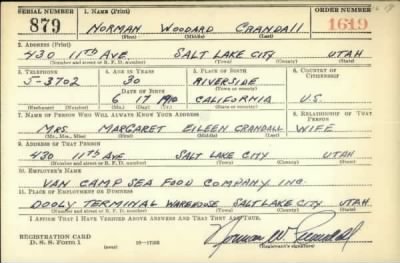 SERIAL NUMBER 1. NAME (Print) ORDER NUMBER
879 NORMAN WOODARD CRANDALL 1619
(First) (Middle) (Last)
2. ADDRESS (Print)
430 11TH AVE SALT LAKE CITY UTAH
(Number and street or R. F. D. number) (Town) (County) (State)
3. TELEPHONE 4. AGE IN YEARS 5. PLACE OF BIRTH 6. COUNTRY OF CITIZENSHIP
5-3702 30 RIVERSIDE
DATE OF BIRTH (Town or county)
6 17 1910 CALIFORNIA U.S.
(Exchange) (Number) (Mo.) (Day) (Yr.) (State or country)
7. NAME OF PERSON WHO WILL ALWAYS KNOW YOUR ADDRESS 8. RELATIONSHIP OF THAT PERSON
MRS. MARGARET EILEEN CRANDALL WIFE
(Mr., Mrs., Miss) (First) (Middle) (Last)
9. ADDRESS OF THAT PERSON
430 11TH AVE SALT LAKE CITY UTAH
(Number and street or R. F. D. number) (Town) (County) (State)
10. EMPLOYER'S NAME
VAN CAMP SEA FOOD COMPANY INC.
11. PLACE OF EMPLOYMENT OR BUSINESS
DOOLY TERMINAL WAREHOUSE SALT LAKE CITY UTAH
(Number and street or R. F. D. number) (Town) (County) (State)
I AFFIRM THAT I HAVE VERIFIED ABOVE ANSWERS AND THAT THEY ARE TRUE.
REGISTRATION CARD
D. S. S. Form 1 (over) 16-17105 Norman W Crandall
(Registrant's signature)